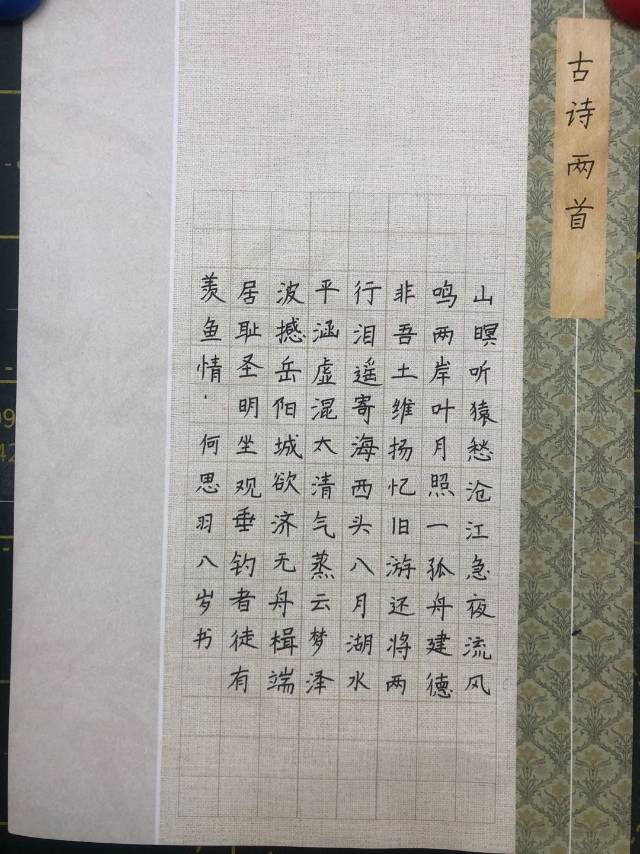 古诗两首
山暝听猿愁沧江急夜流风
鸣两岸叶月照一孤舟建德
非吾土维扬忆旧游还将两
行泪遥寄海西头八月湖水
平涵虚混太清气蒸云梦泽
波撼岳阳城欲济无舟楫端
居耻圣明坐观垂钓者徒有
羡鱼情·何思羽八岁书